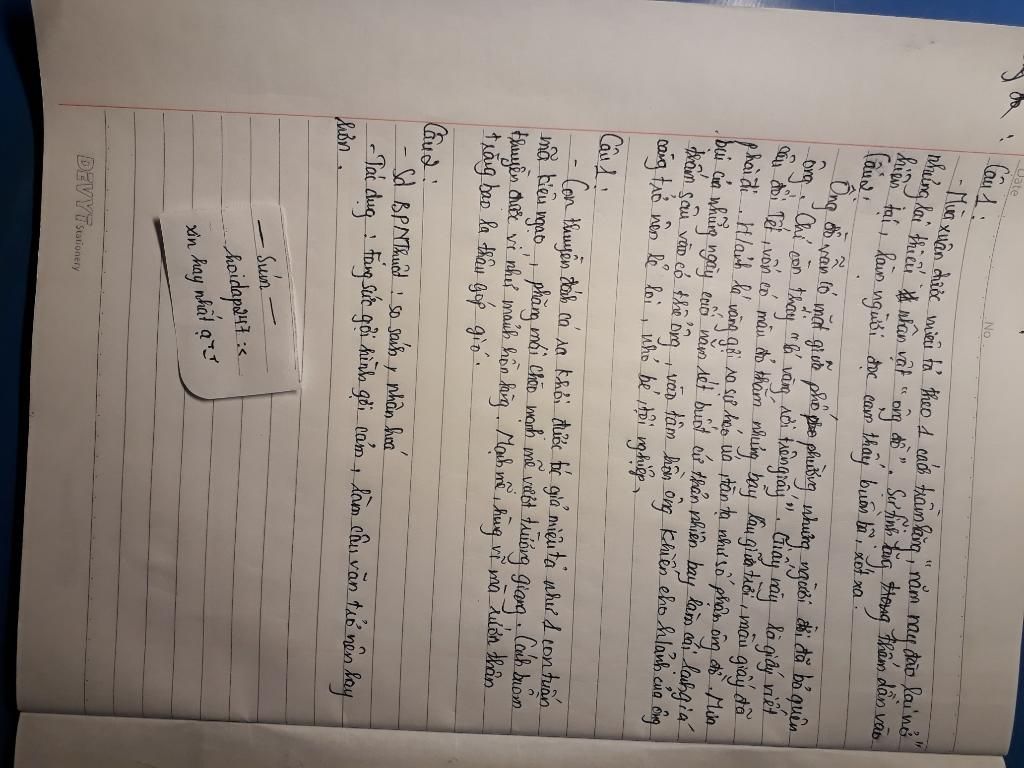 Câu 1:
- Mùa xuân được miêu tả theo 1 cách trầm lặng, "năm nay đào lại nở"
nhưng lại thiếu nhân vật "ông đồ". Sự tĩnh lặng, thấm dần vào
hiện tại, làm người đọc cảm thấy buồn bã, xót xa.
Câu 2:
Ông đồ vẫn có mặt giữa phố phường nhưng người đời đã bỏ quên
ông. Chỉ còn thấy "lá vàng rơi trên giấy". Giấy này là giấy viết
câu đối Tết, vốn có màu đỏ thắm nhưng bay lâu giữa trời, màu giấy đã
phai đi. Hình lá vàng gợi ra sự héo úa tàn tạ như số phận ông đồ. Mưa
bụi của những ngày cuối năm rét buốt cứ thản nhiên bay làm cái lạnh giá
thấm sâu vào cơ thể ông, vào tâm hồn ông khiến cho hình của ông
càng trở nên lẻ loi, nhỏ bé, tội nghiệp,
Câu 1:
- Con thuyền đánh cá ra khơi được tác giả miêu tả như 1 con tuấn
mã kiêu ngạo, phăng mái chèo mạnh mẽ vượt trường giang. Cánh buồm
thuyền được ví như mảnh hồn làng. Mạnh mẽ, hùng vĩ mà rướn thân
trắng bao la thâu góp gió.
Câu 2:
- Sd BPNThuật: so sánh, nhân hoá
- Tác dụng: tăng sức gợi hình gợi cảm, làm câu văn trở nên hay
hơn.
— Sún —
hoidap247 :<
xin hay nhất ạ
DEVYT Stationery
No.
Date